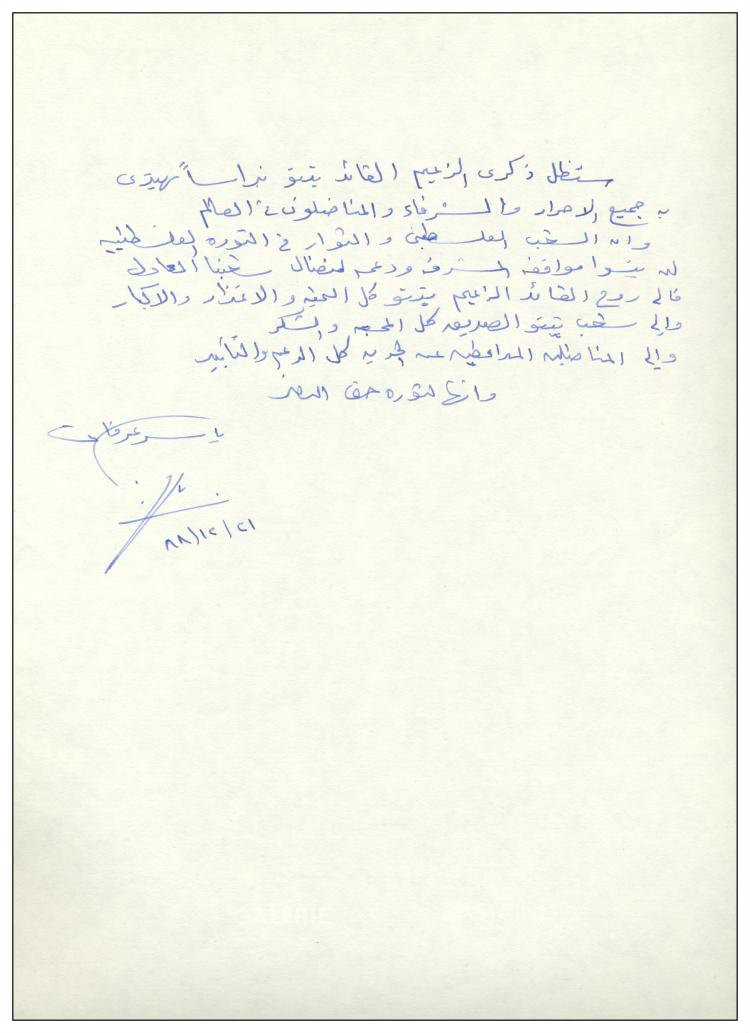 ستظل ذكرى الزعيم القائد تيتو نبراساً يهتدى
به جميع الاحرار والشرفاء والمناضلون فى العالم
وان الشعب الفلسطينى والثوار فى الثوره الفلسطينيه
لن ينسوا مواقفه المشرفه ودعمه لنضال شعبنا العادل
فالى روح القائد الزعيم تيتو كل التحيه والاعتزاز والاكبار
والى شعب تيتو الصديق كل المحبه والشكر
والى المناضلين المدافعين عن الحريه كل الدعم والتأييد
وانها لثوره حتى النصر
ياسر عرفات
٨٨/١٢/٢١